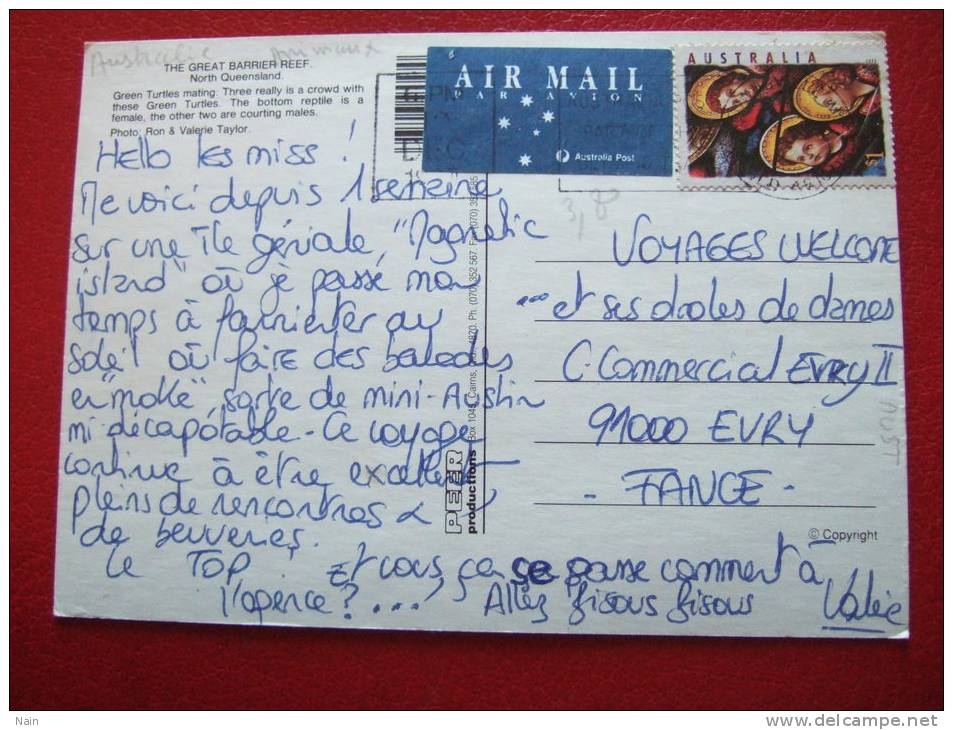 Australie Animaux
THE GREAT BARRIER REEF.
North Queensland.
Green Turtles mating. Three really is a crowd with
these Green Turtles. The bottom reptile is a
female, the other two are courting males.
Photo: Ron & Valerie Taylor.
AIR MAIL
PAR AVION
Australia Post
AUSTRALIA
$1
3,8
Hello les miss !
Me voici depuis 1 semaine
sur une île géniale, "Magnetic
island" où je passe mon
temps à farnienter au
soleil où faire des balades
en "moke", sorte de mini-Austin
mi-décapotable - Ce voyage
continue à être excellent
pleins de rencontres &
de beuveries.
Le TOP. Et vous ça se passe comment à
l'agence ?... Allez bisous bisous Valérie
VOYAGES WELCOME
... et ses drôles de dames
C. Commercial EVRY II
91000 EVRY
- FRANCE -
AUST
PEER
productions
Cairns, 4870. Ph. (070) 352 567. Fax (070)
© Copyright
Nain
www.delcampe.net